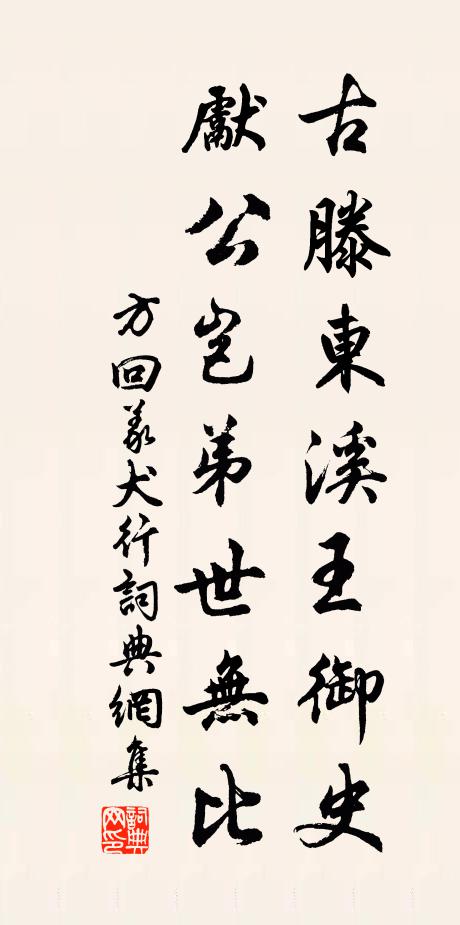 古滕東溪王御史
獻公豈弟世無比
方回義犬行詞典網集
詞典
网印